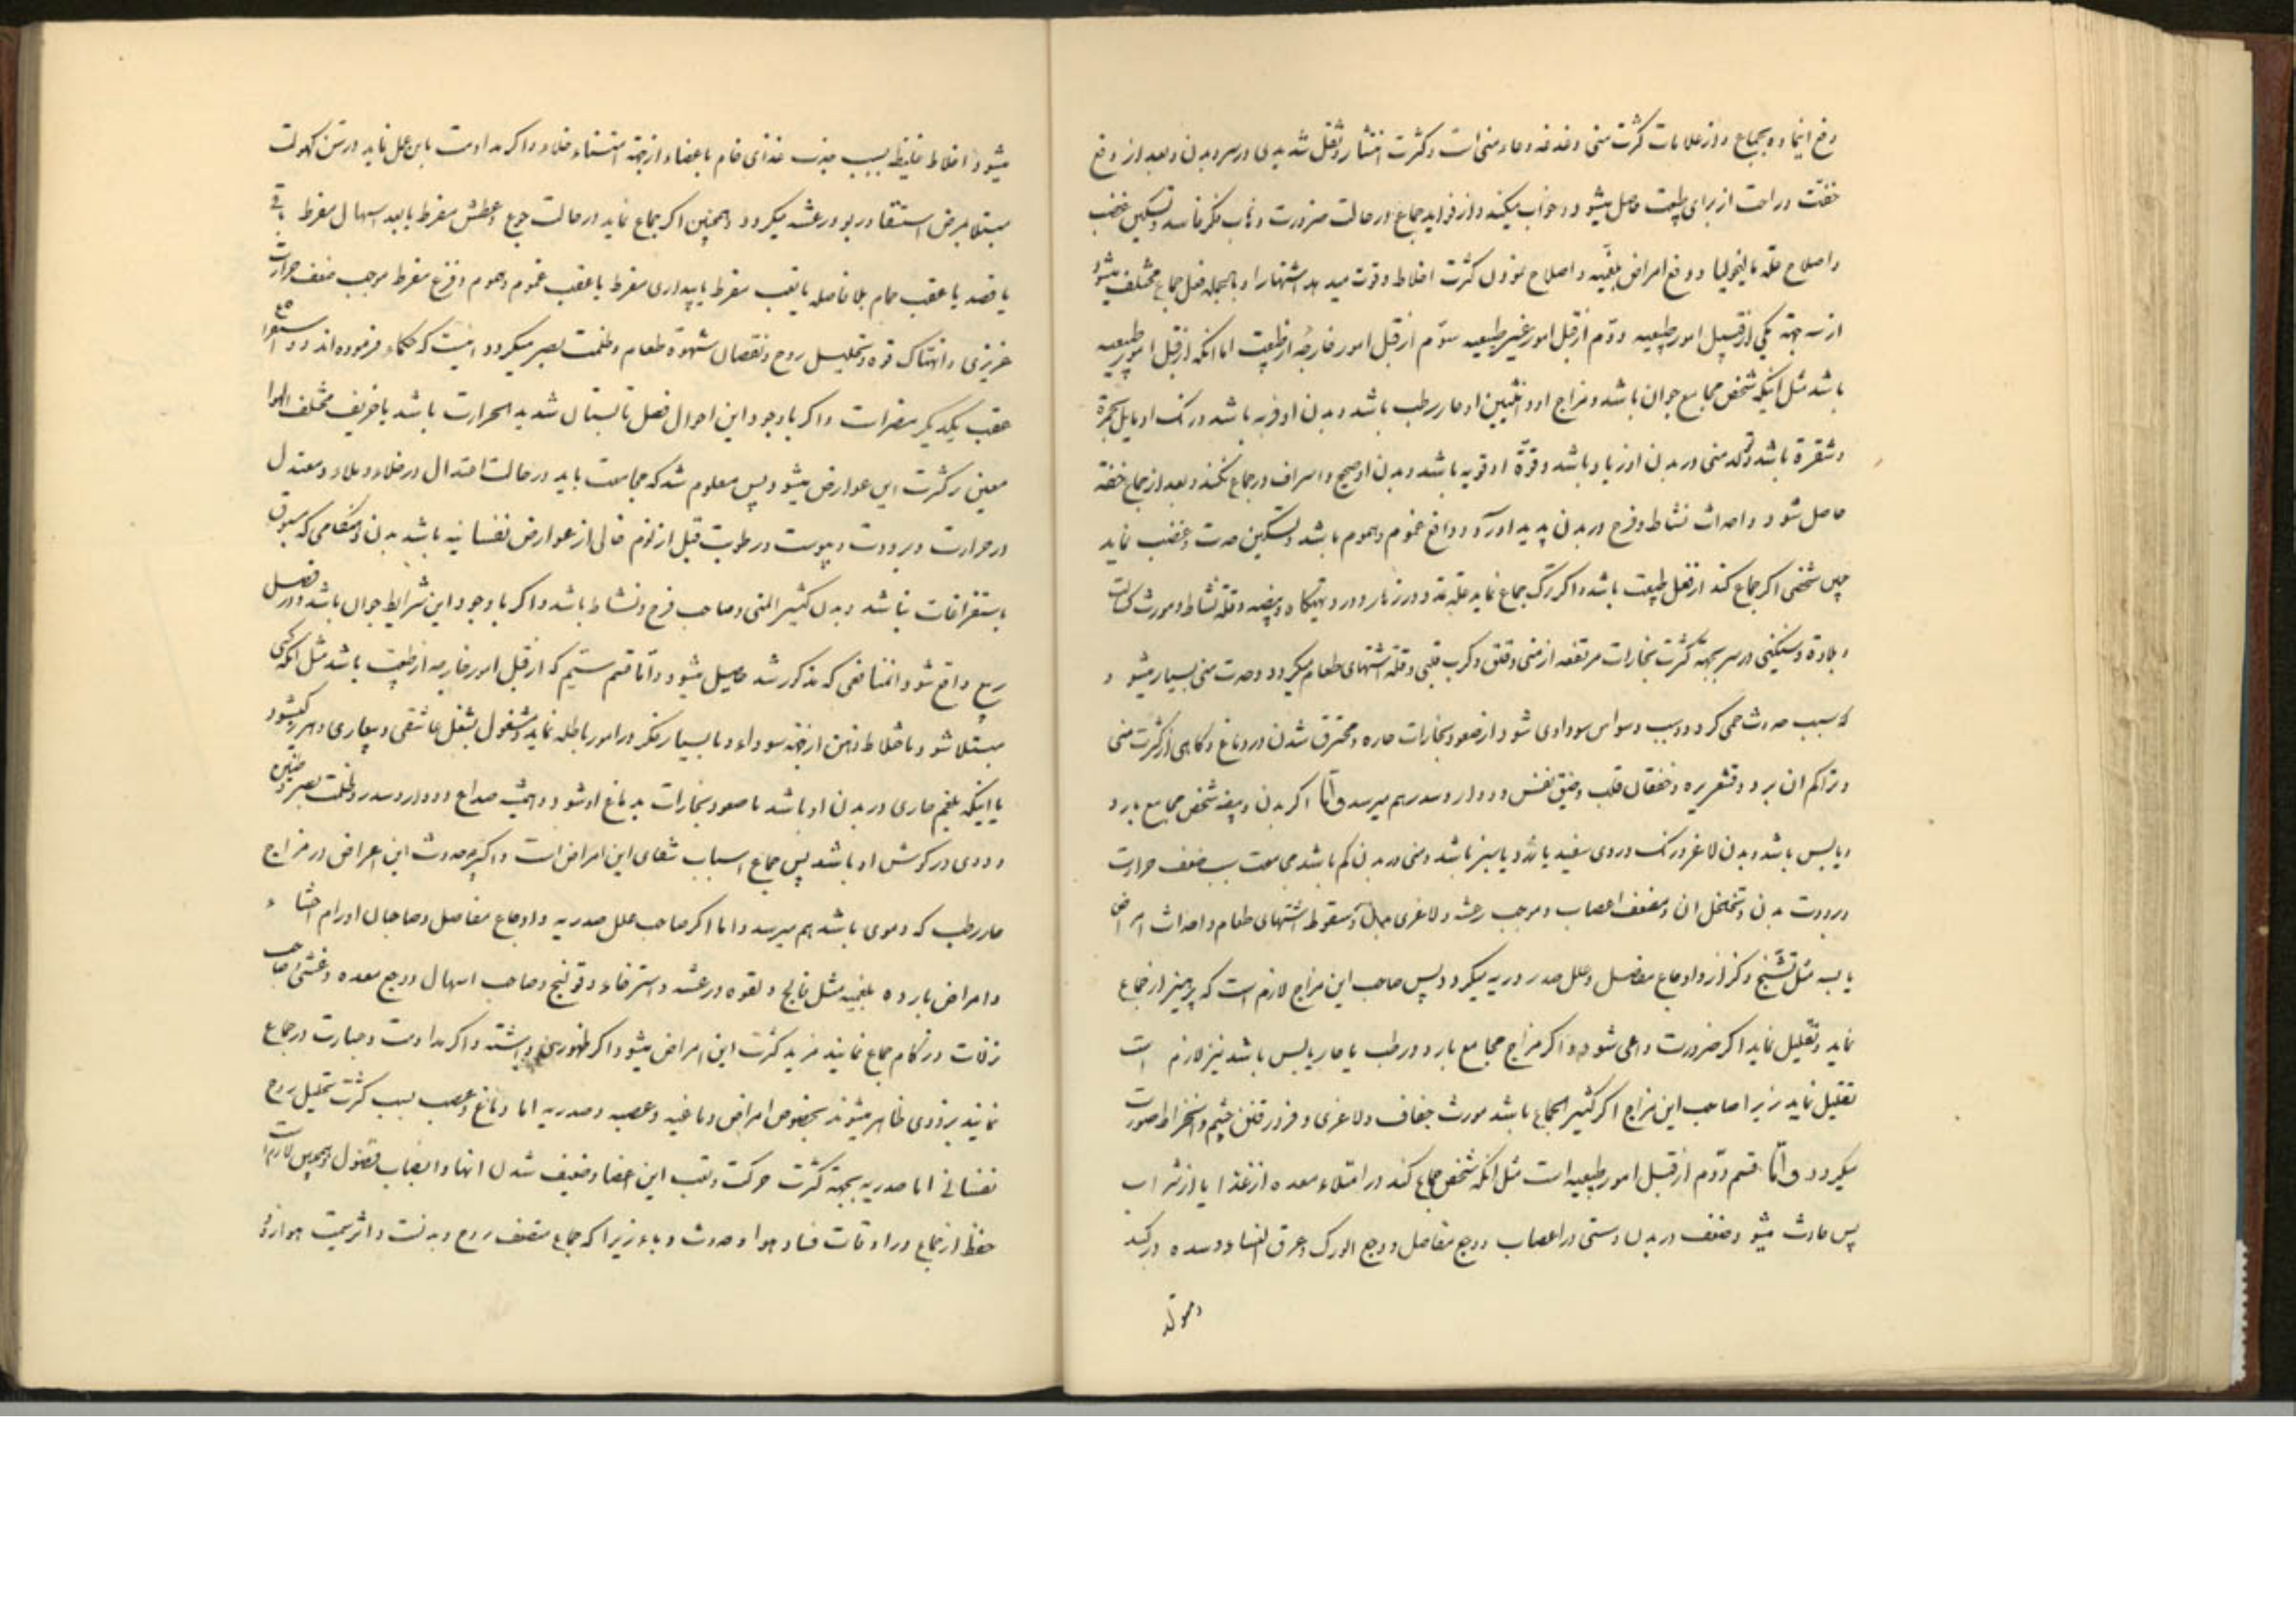 دفع ایماده بجماع و از علامات کثرت منی دغدغه و عاد منی است و کثرت انتشار و ثقل شدیدی در سر و بدن و بعد از دفع
خفت و راحت از برای طبیعت حاصل میشود و خواب میکند و از فواید جماع در حالت ضرورت ذهاب فکر فاسد و تسکین غضب
و اصلاح علة مالیخولیا و دفع امراض بلغمیه و اصلاح کثرت اخلاط و قوت میدهد اشتها را و بالجمله فعل جماع مختلف میشود
از سه جهة یکی از قبیل امور طبیعیه و دوّم از قبل امور غیر طبیعیه سوّم از قبل امور خارجه از طبیعت اما انکه از قبل امور طبیعیه
باشد مثل اینکه شخص مجامع جوان باشد و مزاج او و انثیین او حار رطب باشد و بدن او فربه باشد و رنک او مایل بحمرة
و شقرة باشد و تولد منی در بدن او زیاد باشد و قوّة او قویه باشد و بدن او صحیح و اسراف در جماع نکند و بعد از جماع خفة
حاصل شود و احداث نشاط و فرح در بدن پدید اورد و دافع غموم و هموم باشد و تسکین حدت و غضب نماید
چنین شخصی اگر جماع کند از فعل طبیعت باشد و اکر ترک جماع نماید و بیضه و قلة نشاط و مورث کسالت
و بلادة و سنکینی در سر بجهة کثرت بخارات مرتفعه از منی و قلق و کرب قلبی و قلة اشتهای طعام میکردد و حدت منی بسیار میشود و
که سبب حدوث حمی کردد و سبب وسواس سوداوی شود از صعود بخارات حاره و محترق شدن در دماغ و کاهی از کثرت منی
و تراکم ان برد و قشعریره و خفقان قلب و ضیق نفس و دوار و سدر بهم میرسد و امّا اکر بدن و بیضه شخص مجامع بارد
و یابس باشد و بدن لاغر و رنک و روی سفید یا زرد یا سبز باشد و منی در بدن کم باشد مجامعت سبب ضعف حرارت
و برودت بدن و تخلخل ان و مضعف اعصاب و موجب رعشه و لاغری و سقوط اشتهای طعام و احداث امراض
یابسه مثل تشنّج و کزاز و اوجاع مفاصل و علل صدر و ریه میکردد پس صاحب این مزاج لازم است که پرهیز از جماع
نماید و تقلیل نماید اکر ضرورت داعی شود و اکر مزاج مجامع بارد و رطب یا حار یابس باشد نیز لازم است
تقلیل نماید زیرا صاحب این مزاج اکر کثیر الجماع باشد مورث جفاف و لاغری و فرو رفتن چشم و انخراط صورت
میکردد و امّا قسم دوّم از قبل امور طبیعیه است مثل انکه شخص جماع کند در امتلاء معده از غذا یا از شراب
پس حادث میشود ضعف در بدن و سستی در اعصاب و وجع مفاصل و وجع الورک و عرق النسا و سده در کبد
و متولد
میشود اخلاط غلیظه بسبب جذب غذای خام باعضاء از جهة اقتضاء خلاء و اکر مداومت باین عمل نماید در سن کهولت
مبتلا بمرض استسقا و ربو و رعشه میکردد و همچنین اکر جماع نماید در حالت جوع و عطش مفرط یا بعد اسهال مفرط یا قی
یا فصد یا عقب حمام بلا فاصله یا تعب مفرط یا بیداری مفرط یا عقب غموم و هموم و فزع مفرط موجب ضعف حرارت
غریزی و انهتاک قوه و تحلیل روح و نقصان شهوة طعام و ظلمت بصر میکردد اینست که حکماء فرموده اند دو استفراغ
عقب یکدیکر مضر است و اکر باوجود این احوال فصل تابستان شدید الحرارت باشد یا خریف مختلف الهوا
معین بر کثرت این عوارض میشود پس معلوم شد که مجامعت باید در حالت اعتدال در خلاء و ملاء و معتدل
در حرارت و برودت و یبوست و رطوبت قبل از نوم خالی از عوارض نفسانیه باشد بدن و هنکامی که مسبوق
باستفراغات نباشد و بدن کثیر المنی و صاحب فرح و نشاط باشد و اکر باوجود این شرایط جوان باشد و در فصل
ربیع واقع شود انمنافعی که مذکور شد حاصل میشود و امّا قسم سیّم که از قبل امور خارجه از طبیعت باشد مثل انکه کسی
مبتلا شود باختلاط ذهن از جهة سوداء و یا بسیار فکر در امور باطله نماید و مشغول بشغل عاشقی و بیعاری و هرزکی شود
یا اینکه بلغم حاری در بدن او باشد یا صعود بخارات بدماغ او شود و همیشه صداع و دوار و سدر و ظلمت بصر و طنین
و دوی در کوش او باشد پس جماع اسباب شفای این امراض است و اکثر حدوث این اعراض در مزاج
حار رطب که دموی باشد بهم میرسد و اما اکر صاحب علل صدریه و اوجاع مفاصل و صاحبان اورام احشاء
و امراض بارده بلغمیه مثل فالج و لقوه و رعشه و استرخاء و قولنج و صاحب اسهال و وجع معده و غشی و صاحب
نزلات و زکام جماع نمایند مزید کثرت این امراض میشود اکر ظهوری داشته و اکر مداومت و جسارت در جماع
نمایند بزودی ظاهر میشوند بخصوص امراض دماغیه و عصبیه و صدریه اما دماغ و عصب بسبب کثرت تحلیل روح
نفسانی اما صدریه بجهة کثرت حرکت و تعب این اعضا و ضعیف شدن انها و انصباب فضول لازم است
حفظ از جماع در اوقات فساد هوا و حدوث وباء زیرا که جماع مضعف روح و بدنست و اثر سمیت هوا زود